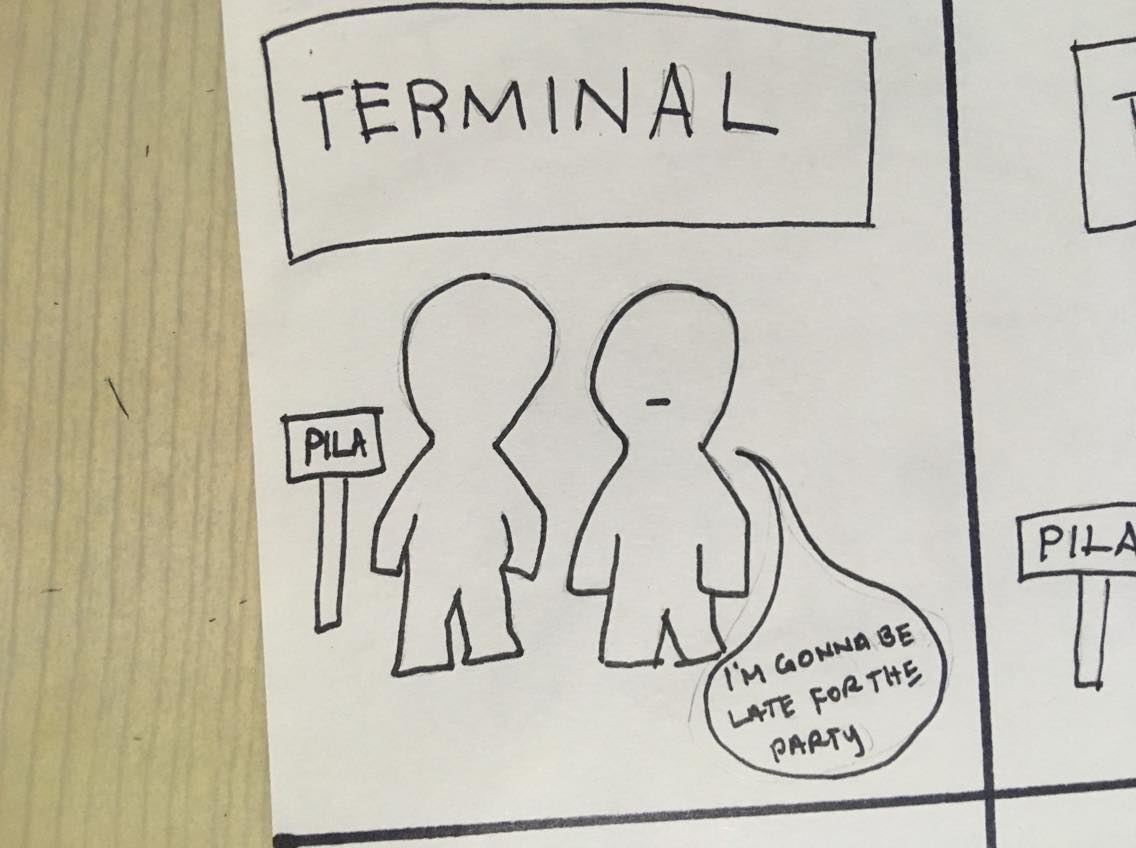 TERMINAL
PILA
I'M GONNA BE
LATE FOR THE
PARTY
T
PILA